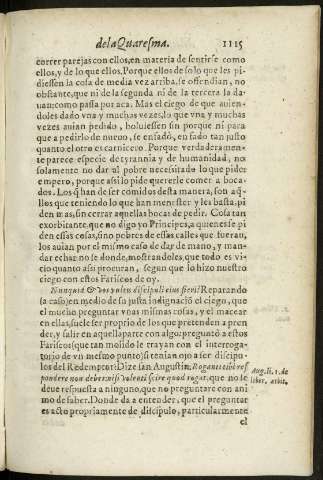 de la Quaresma. 1115
correr parejas con ellos, en materia de sentirse como
ellos, y de lo que ellos. Porque ellos de solo que les pi-
diessen la cosa de media vez arriba, se offendian, no
obstante, que ni de la segunda ni de la tercera la da-
uan; como passa por aca. Mas el ciego de que auien-
doles dado vna y muchas vezes, lo que vna y muchas
vezes auian pedido, boluiessen sin porque ni para
que a pedirlo de nueuo, se enfadò, en fado tan justo
quanto el otro es carnicero. Porque verdaderamen-
te parece especie de tyrannia y de humanidad, no
solamente no dar al pobre necesitado lo que pide
empero, porque assi lo pide quererle comer a boca-
dos. Los q̃ han de ser comidos desta manera, son aq̃-
llos que teniendo lo que han menester y les basta, pi
den mas, sin cerrar aquellas bocas de pedir. Cosa tan
exorbitante, que no digo yo Principes, a quienes se pi
den essas cosas, sino pobres de essas calles que fueran,
los auian por el mismo caso de dar de mano, y man-
dar echar no se donde, mostrandoles, que todo es vi-
cio quanto assi procuran, segun que lo hizo nuestro
ciego con estos Fariseos de oy.
Nunquid & vos vultis discipuli eius fieri? Reparando
(a caso) en medio de su justa indignaciõ el ciego, que
el mucho preguntar vnas mismas cosas, y el macear
en ellas, suele ser proprio de los que pretenden a pren
der, y salir en aquella parte con algo: preguntò a estos
Fariseos (que tan molido le trayan con el interroga-
torio de vn mesmo punto) si tenian ojo a ser discipu-
los del Redemptor: Dize san Augustin: Roganti tibi res
pondere non deberem, nisi volenti scire quod rogat, que no le
deue respuesta a ninguno, que no preguntare con ani
mo de saber. Donda da a entender, que el preguntar
es acto propriamente de discipulo, particularmente
el
Aug. li. 1. de
liber. arbit.